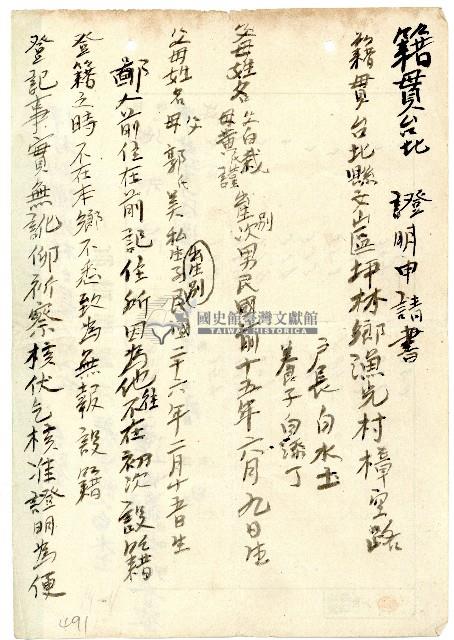 籍貫台北 證明申請書
籍貫台北縣文山區坪林鄉漁光村樟空路
戶長 白水土
養子 白添丁
父母姓名 父白裁
母黃氏謹
出生別
次男民國前十五年六月九日生
父母姓名 父
母 郭 美 私生子
出生別
民國二十六年二月十五日生
鄙人前住在前記住所因為他往不在初次設籍
登籍之時不在本鄉不悉致為無報設籍
登記事實無訛仰祈察核伏乞核准證明為便
491
國史館臺灣文獻館
TAIWAN HISTORICA